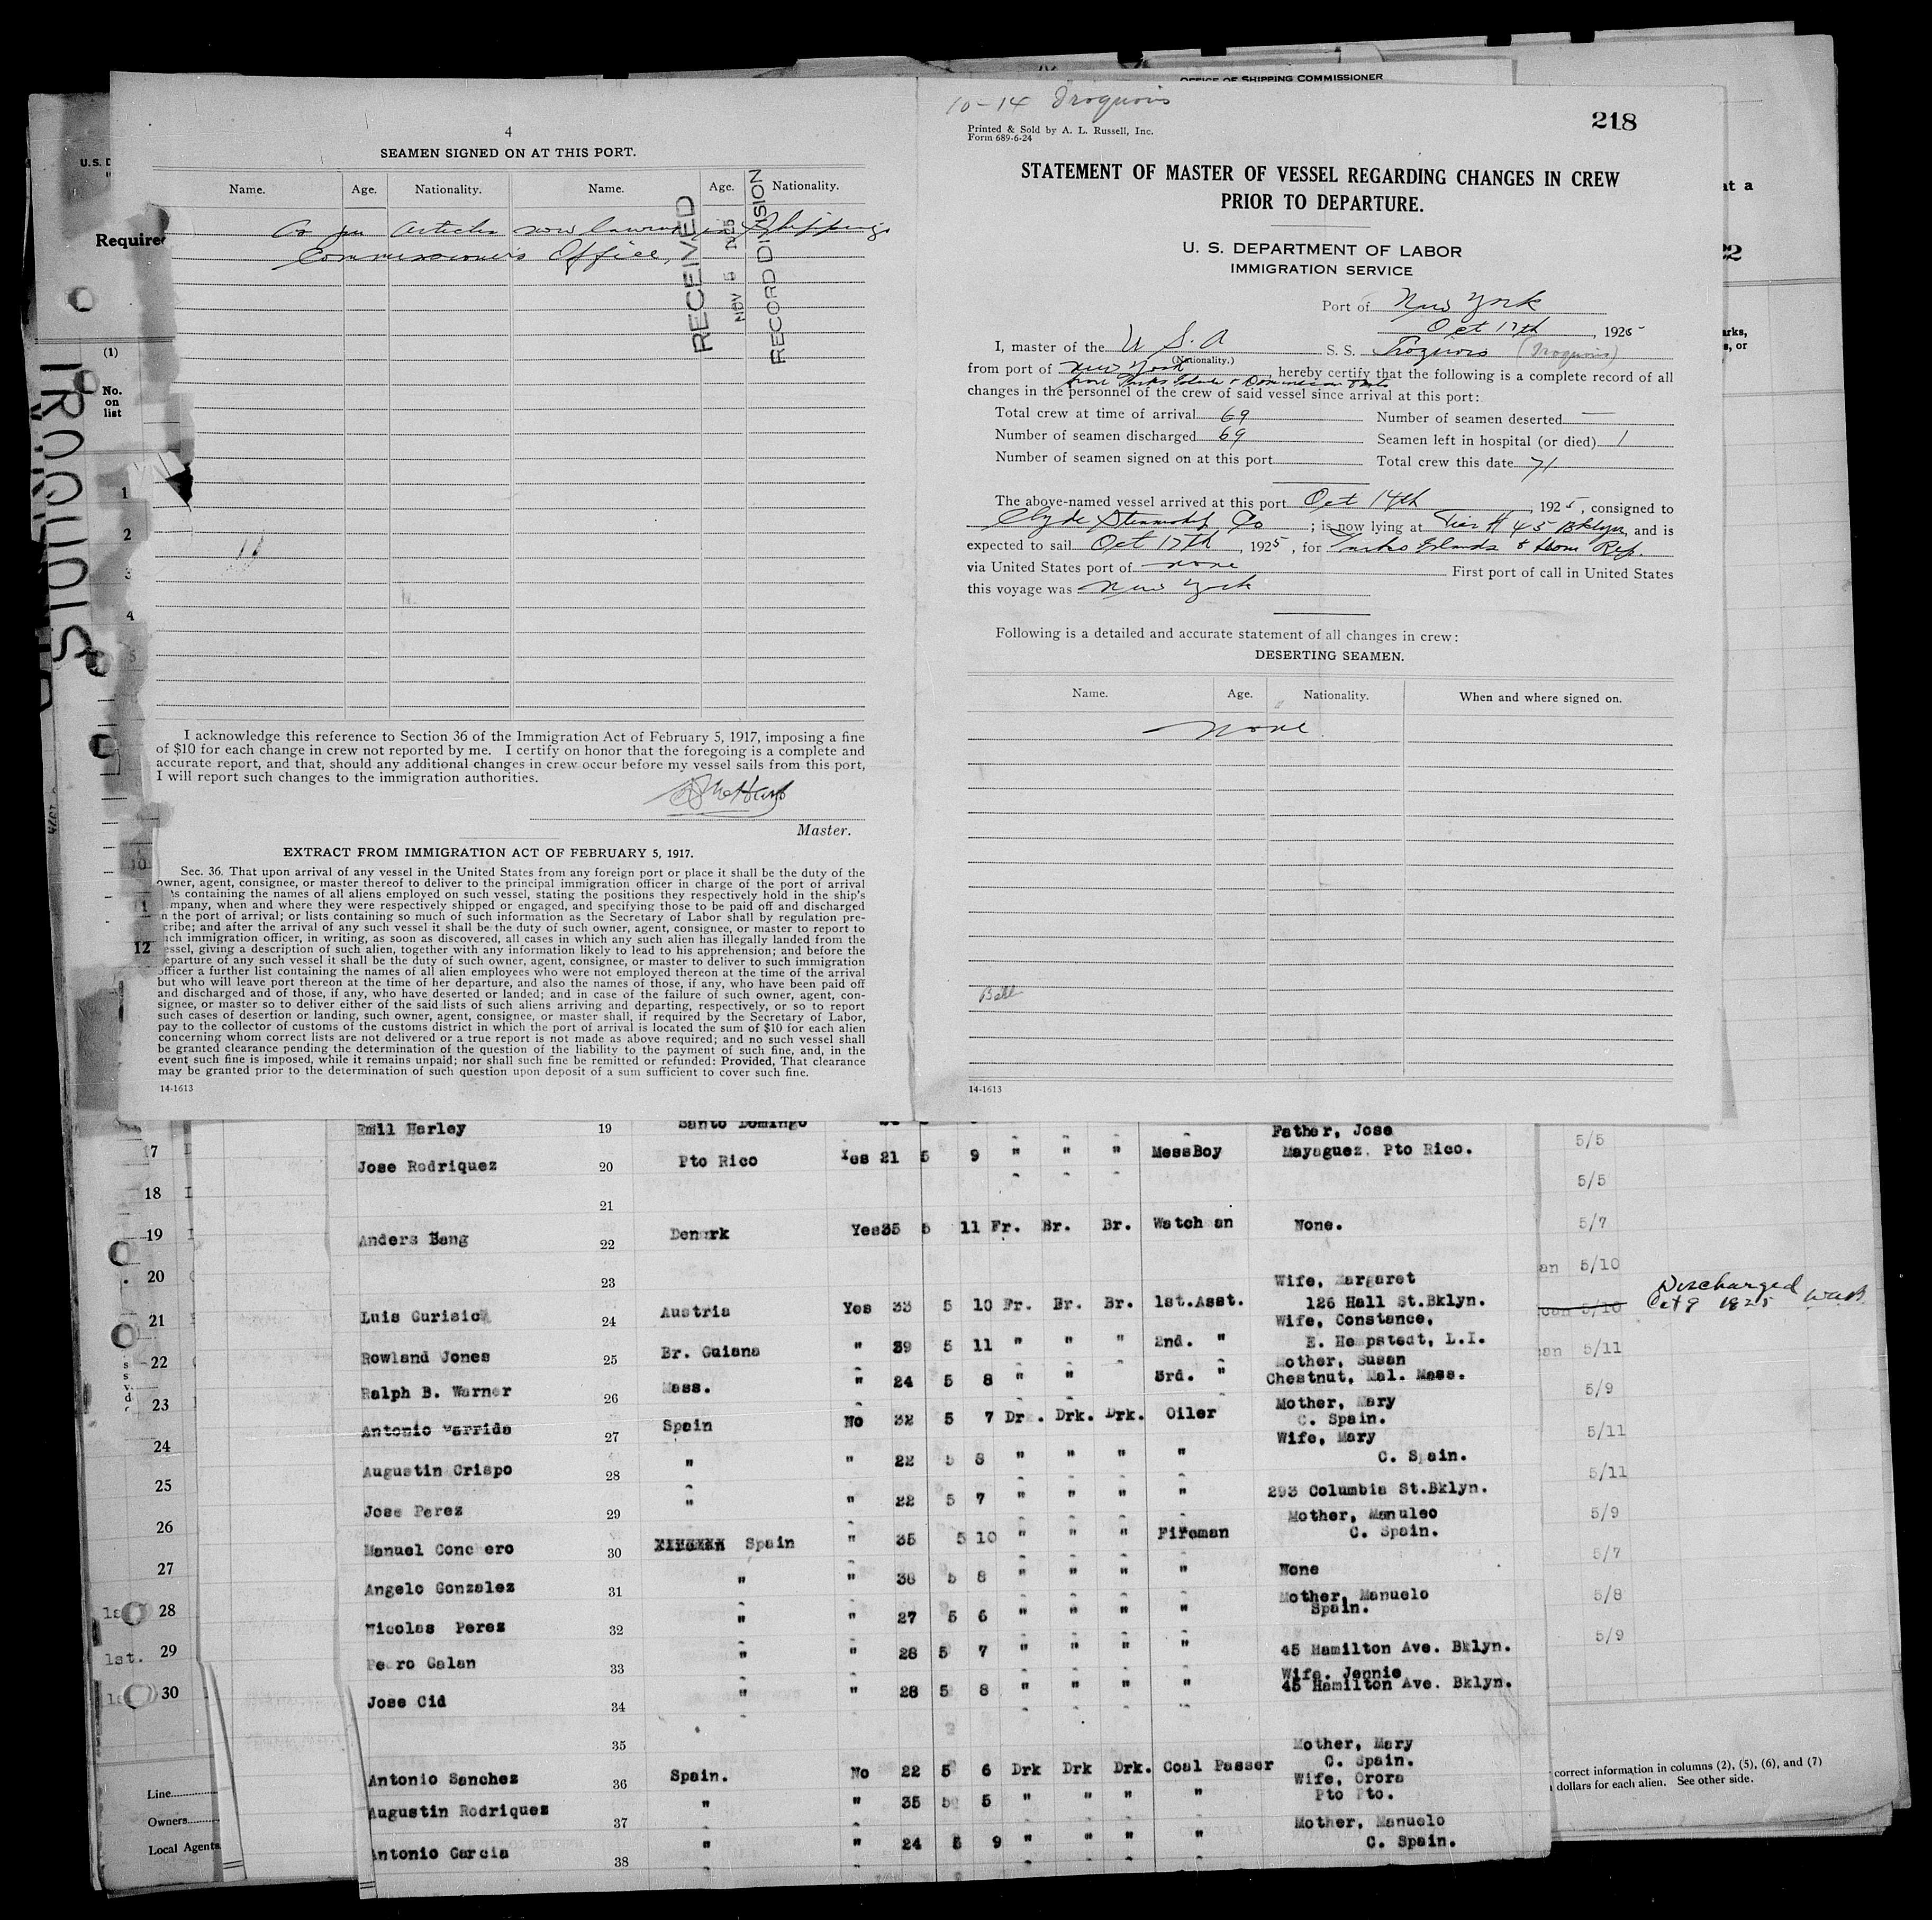 OFFICE OF SHIPPING COMMISSIONER
4
SEAMEN SIGNED ON AT THIS PORT.
Name. Age. Nationality. Name. Age. Nationality.
Articles now in Shipping
Commissioner's Office,
RECEIVED
NOV 5 1925
RECORD DIVISION
I acknowledge this reference to Section 36 of the Immigration Act of February 5, 1917, imposing a fine
of $10 for each change in crew not reported by me. I certify on honor that the foregoing is a complete and
accurate report, and that, should any additional changes in crew occur before my vessel sails from this port,
I will report such changes to the immigration authorities.
Master.
EXTRACT FROM IMMIGRATION ACT OF FEBRUARY 5, 1917.
Sec. 36. That upon arrival of any vessel in the United States from any foreign port or place it shall be the duty of the
owner, agent, consignee, or master thereof to deliver to the principal immigration officer in charge of the port of arrival
containing the names of all aliens employed on such vessel, stating the positions they respectively hold in the ship's
mpany, when and where they were respectively shipped or engaged, and specifying those to be paid off and discharged
n the port of arrival; or lists containing so much of such information as the Secretary of Labor shall by regulation pre-
cribe; and after the arrival of any such vessel it shall be the duty of such owner, agent, consignee, or master to report to
uch immigration officer, in writing, as soon as discovered, all cases in which any such alien has illegally landed from the
essel, giving a description of such alien, together with any information likely to lead to his apprehension; and before the
eparture of any such vessel it shall be the duty of such owner, agent, consignee, or master to deliver to such immigration
officer a further list containing the names of all alien employees who were not employed thereon at the time of the arrival
but who will leave port thereon at the time of her departure, and also the names of those, if any, who have been paid off
and discharged and of those, if any, who have deserted or landed; and in case of the failure of such owner, agent, con-
signee, or master so to deliver either of the said lists of such aliens arriving and departing, respectively, or so to report
such cases of desertion or landing, such owner, agent, consignee, or master shall, if required by the Secretary of Labor,
pay to the collector of customs of the customs district in which the port of arrival is located the sum of $10 for each alien
concerning whom correct lists are not delivered or a true report is not made as above required; and no such vessel shall
be granted clearance pending the determination of the question of the liability to the payment of such fine, and, in the
event such fine is imposed, while it remains unpaid; nor shall such fine be remitted or refunded: Provided, That clearance
may be granted prior to the determination of such question upon deposit of a sum sufficient to cover such fine.
14-1613
10-14 Iroquois
218
Printed & Sold by A. L. Russell, Inc.
Form 689-6-24
STATEMENT OF MASTER OF VESSEL REGARDING CHANGES IN CREW
PRIOR TO DEPARTURE.
U. S. DEPARTMENT OF LABOR
IMMIGRATION SERVICE
Port of New York
Oct 17th, 1925
I, master of the U S. A S. S. Iroquois (Iroquois)
(Nationality.)
from port of New York hereby certify that the following is a complete record of all
from Turks Islands & Dominican Ports
changes in the personnel of the crew of said vessel since arrival at this port:
Total crew at time of arrival 69 Number of seamen deserted —
Number of seamen discharged 69 Seamen left in hospital (or died) 1
Number of seamen signed on at this port Total crew this date 71
The above-named vessel arrived at this port Oct 14th, 1925, consigned to
Clyde Steamship Co ; is now lying at Pier # 45 Bklyn, and is
expected to sail Oct 17th, 1925, for Turks Islands & Dom Rep.
via United States port of none First port of call in United States
this voyage was New York
Following is a detailed and accurate statement of all changes in crew:
DESERTING SEAMEN.
Name. Age. Nationality. When and where signed on.
none
14-1613
U.S. D
Required
IROQUOIS
(1)
No.
on
list
1
2
3
4
5
10
1
12
17
18
19
20
21
22
23
24
25
26
27
28
29
30
Line
Owners
Local Agents
Emil Harley 19 Santo Domingo
Father, Jose
Jose Rodriquez 20 Pto Rico Yes 21 5 9 " " " MessBoy Mayaguez, Pto Rico.
21
Anders Bang 22 Denmark Yes 35 5 11 Fr. Br. Br. Watchman None.
23
Wife, Margaret
Luis Curisic 24 Austria Yes 33 5 10 Fr. Br. Br. 1st.Asst. 126 Hall St.Bklyn.
Wife, Constance,
Rowland Jones 25 Br. Guiana " 39 5 11 " " " 2nd. " E. Hempstedt, L.I.
Mother, Susan
Ralph B. Warner 26 Mass. " 24 5 8 " " 3rd. " Chestnut, Mal. Mass.
Mother, Mary
Antonio 27 Spain No 32 5 7 Dr. Drk. Drk. Oiler C. Spain.
Wife, Mary
Augustin Crispo 28 " " 22 5 8 " " " " C. Spain.
Jose Perez 29 " " 22 5 7 " " " " 293 Columbia St.Bklyn.
Mother, Manuleo
Manuel Conchero 30 Spain " 35 5 10 " " " Fireman C. Spain.
Angelo Gonzalez 31 " " 36 5 8 " " " " None
Mother, Manuelo
Nicolas Perez 32 " " 27 5 6 " " " " Spain.
Pedro Galan 33 " " 28 5 7 " " " " 45 Hamilton Ave. Bklyn.
Wife, Jennie
Jose Cid 34 " " 28 5 8 " " " " 45 Hamilton Ave. Bklyn.
35
Mother, Mary
Antonio Sanchez 36 Spain. No 22 5 6 Drk Drk Drk. Coal Passer C. Spain.
Wife, Orora
Augustin Rodriquez 37 " " 35 5 5 " " " " Pto Pto.
Mother, Manuelo
Antonio Garcia 38 " " 24 5 9 " " " " C. Spain.
at a
22
arks,
s, or
5/5
5/5
5/7
an 5/10
5/10
an 5/11
5/9
5/11
5/11
5/9
5/7
5/8
5/9
Discharged
Oct 9 1925
correct information in columns (2), (5), (6), and (7)
dollars for each alien. See other side.